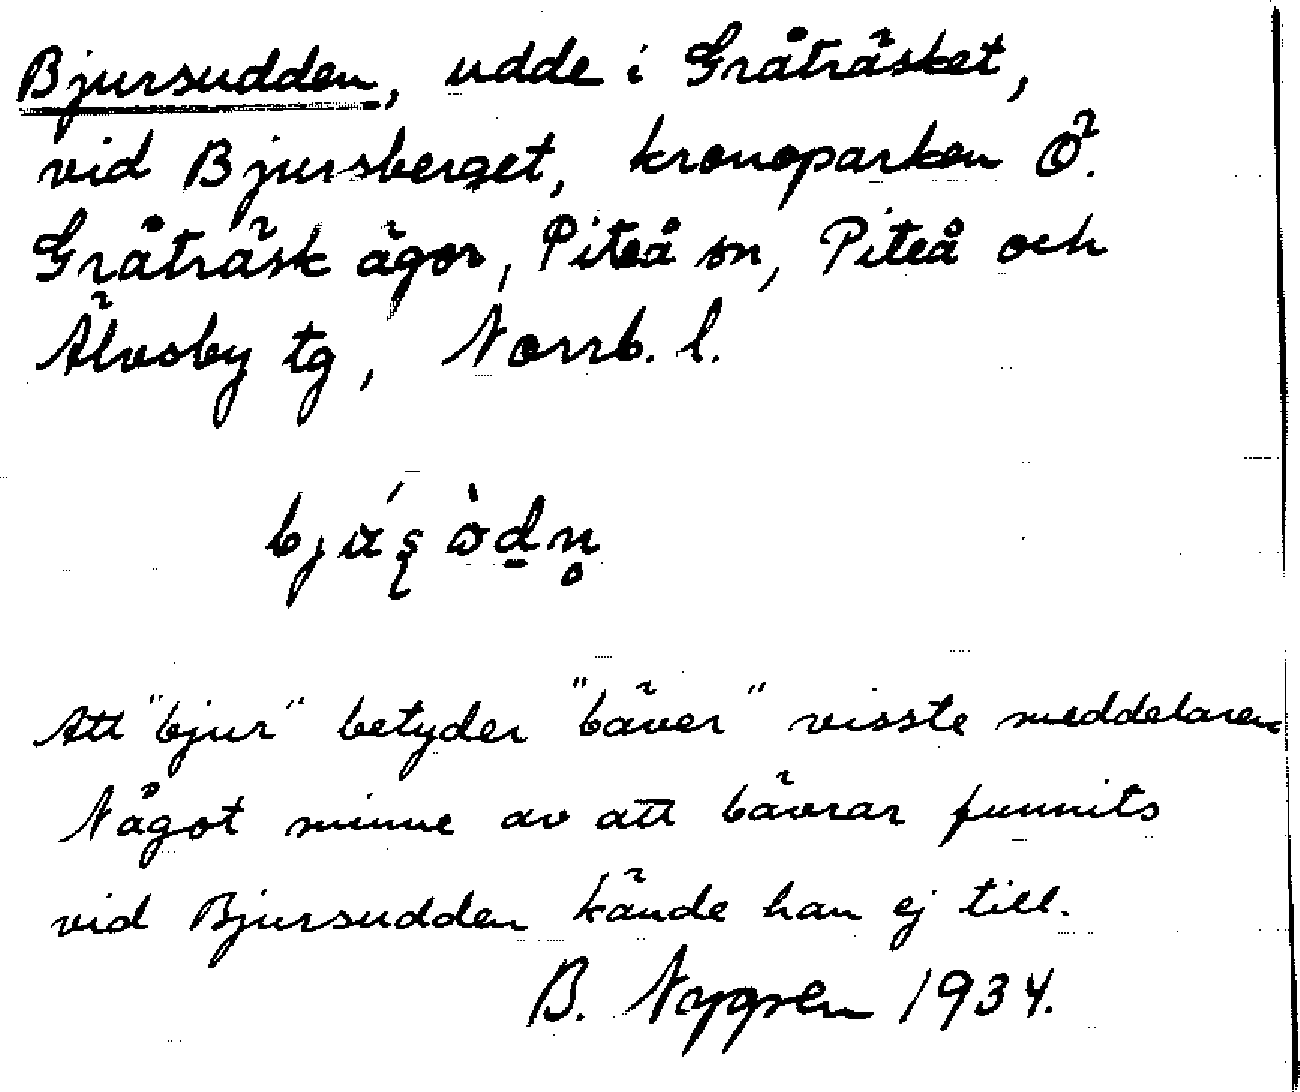 Bjursudden, udde i Gråträsket,
vid Bjursberget, kronoparken Ö.
Gråträsk ägor, Piteå sn, Piteå och
Älvsby tg, Norrb. l.
Att "bjur" betyder "bäver" visste meddelaren
Något minne av att bävrar funnits
vid Bjursudden kände han ej till.
B. Nygren 1934.